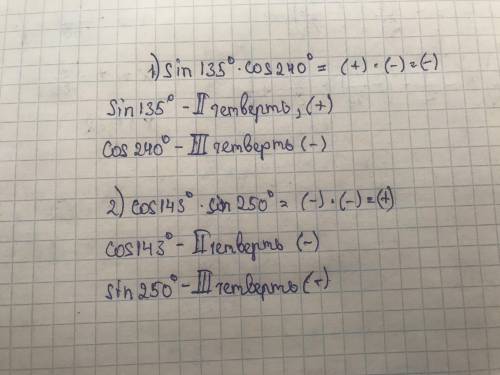 1) sin 135° · cos 240° = (+) · (-) = (-)
sin 135° - II четверть, (+)
cos 240° - III четверть (-)
2) cos 143° · sin 250° = (-) · (-) = (+)
cos 143° - II четверть (-)
sin 250° - III четверть (+)